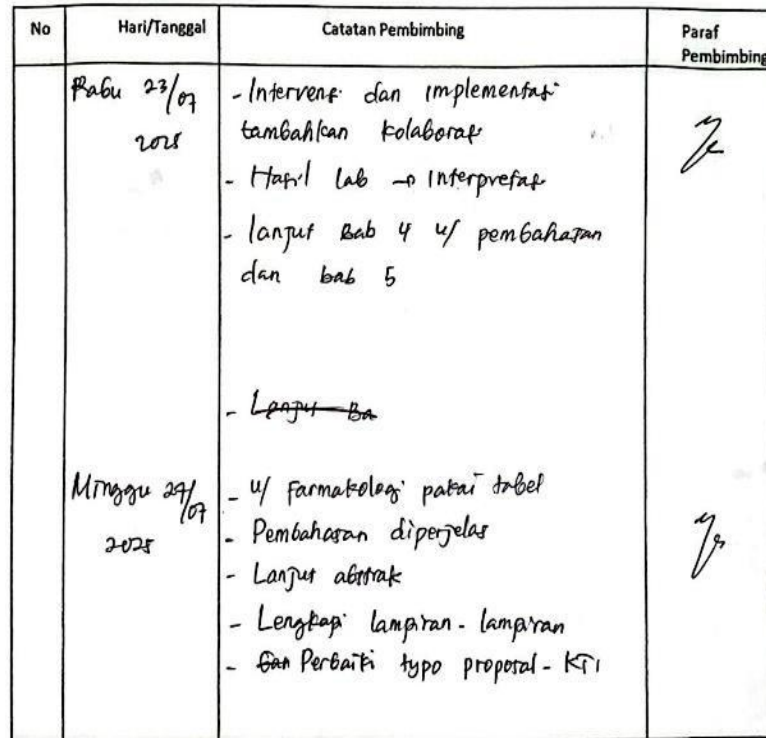 No Hari/Tanggal Catatan Pembimbing Paraf
Pembimbing
Rabu 23/07 - Intervensi dan implementasi
2025 tambahkan kolaborasi
- Hasil lab → Interpretasi
- lanjut Bab 4 u/ pembahasan
dan bab 5
- Lanjut Ba
Minggu 27/07 - u/ farmakologi pakai tabel
2025 - Pembahasan diperjelas
- Lanjut abstrak
- Lengkapi lampiran - lampiran
- Perbaiki typo proposal - KTI